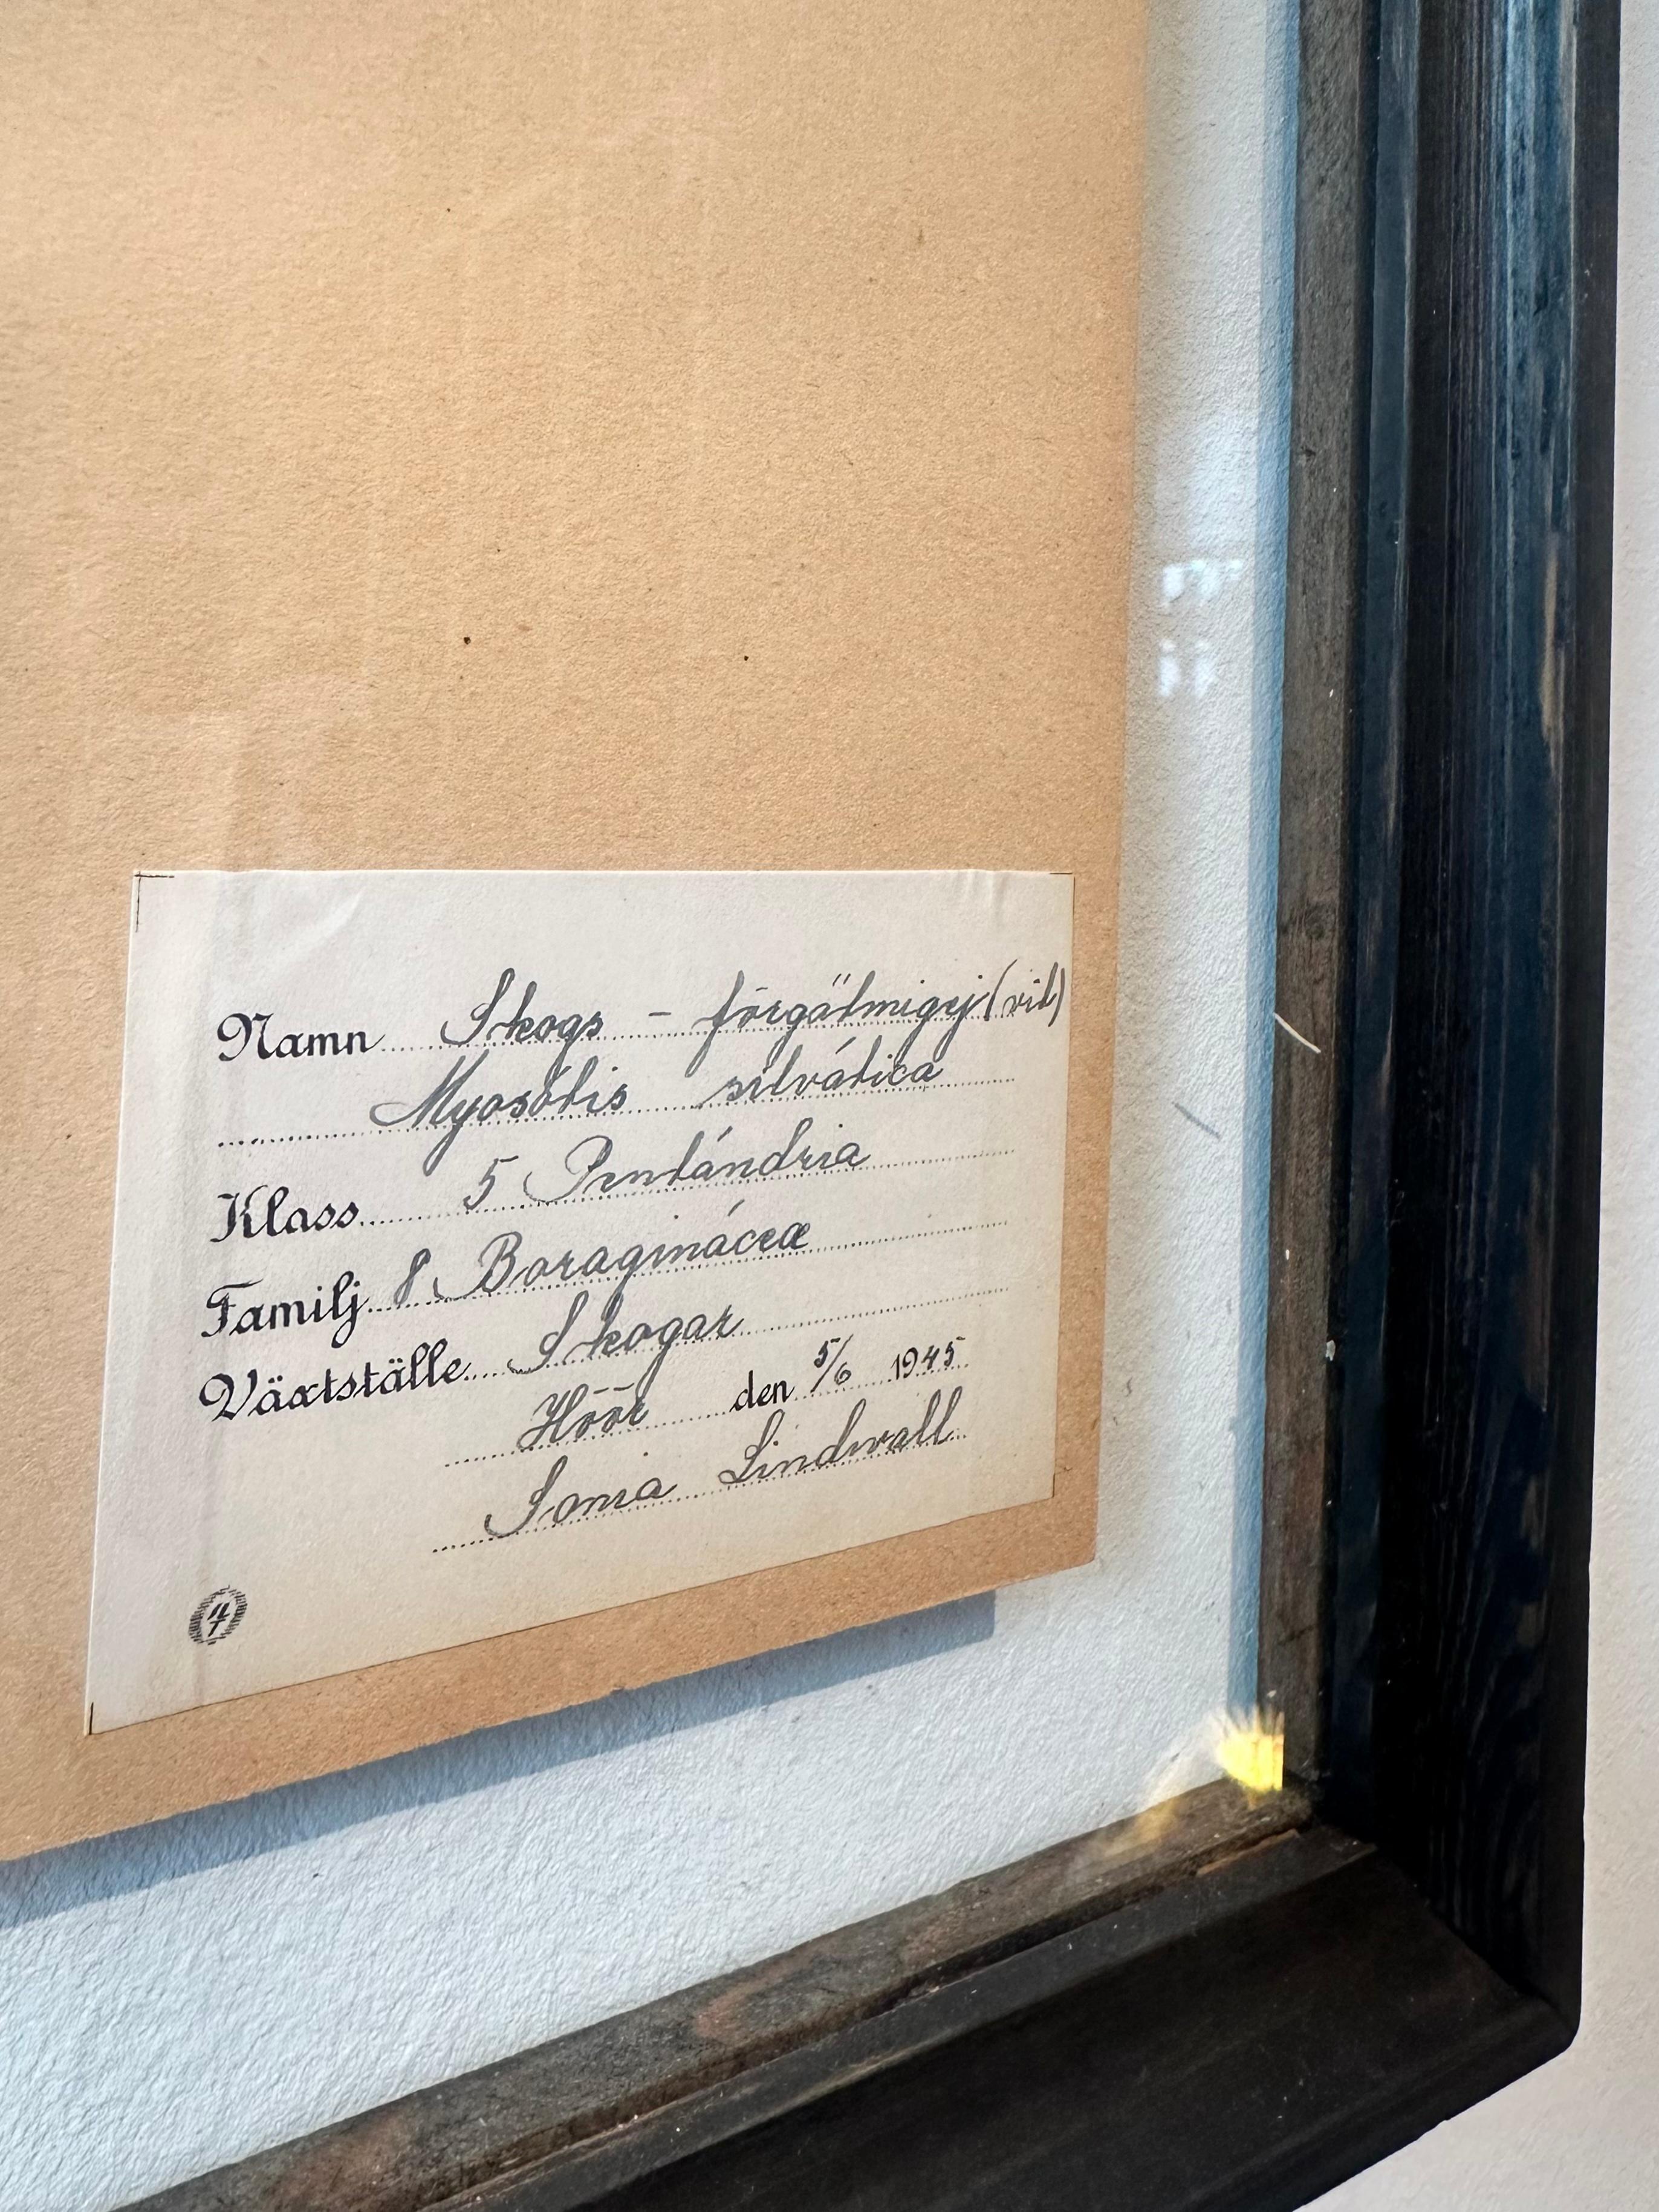 Namn Skogs - förgätmigej (vit)
Myosótis silvática
Klass 5 Pentándria
Familj 8 Boragináceæ
Växtställe Skogar
Höör den 5/6 1945
Sonia Lindwall